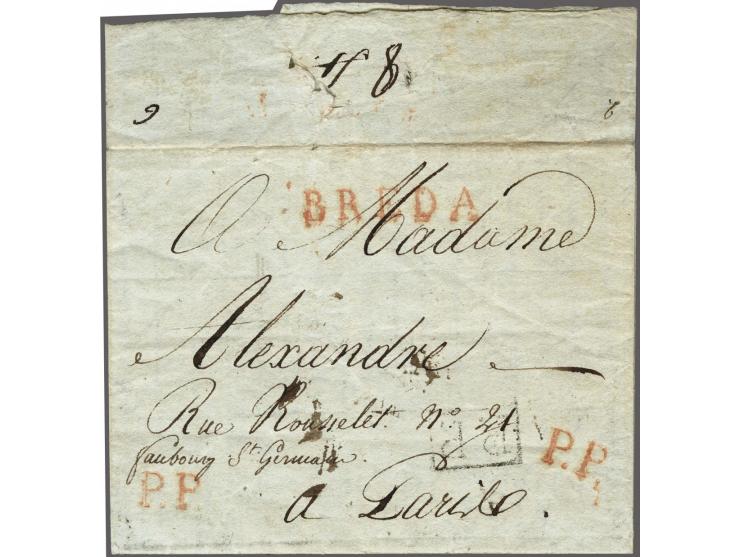 8
6
BREDA
A Madame
Alexandre
Rue Rousselet. N° 21
faubourg St Germain.
P.P.
P.P.
P.P.
a Paris.